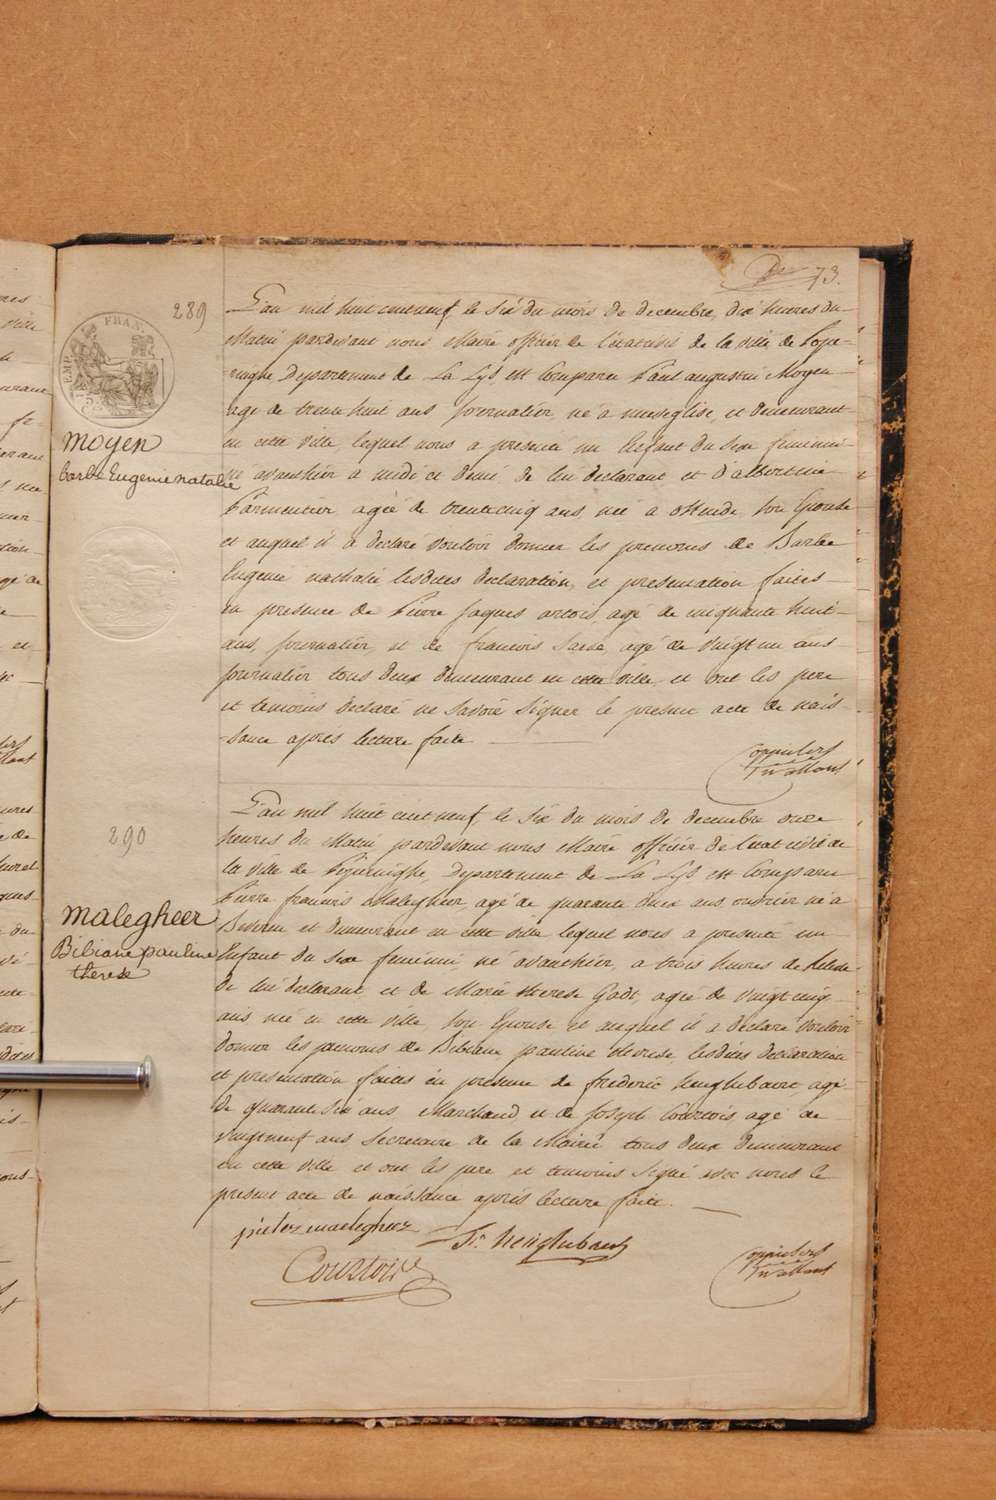 73.
289
L'an mil huit cent neuf le six du mois de decembre, dix heures du
Matin pardevant nous Maire officier de l'état civil de la ville de Pope-
-ringhe, Departement de La Lys, est Comparu Paul augustin Moyen
agé de trente huit ans journalier, né à et demeurant
en cette ville, lequel nous a presenté un Enfant du sexe feminin
né avanthier à midi et demi, de lui declarant et d'albertine
Parmentier agée de trente cinq ans née a Ostende son Epouse
et auquel il a declaré vouloir donner les prenoms de Barbe
Eugenie nathalie lesdites declaration, et presentation faites
en presence de Pierre Jaques artois, agé de cinquante huit
ans, journalier, et de francois agé de vingt un ans
journalier tous deux demeurant en cette ville, et ont les pere
et temoins declaré ne savoir signer le present acte de nais-
-sance apres lecture faite.
FRAN.
moyen
barbe Eugenie natalie
290
L'an mil huit cent neuf le six du mois de decembre onze
heures du Matin pardevant nous Maire officier de l'état civil de
la ville de Poperinghe, Departement de La Lys est Comparu
Pierre francois Malegheer, agé de quarante deux ans ouvrier né à
Beveren et demeurant en cette ville lequel nous a presenté un
Enfant du sexe feminin, né avanthier, a trois heures de
de lui declarant et de Marie therese agée de vingt cinq
ans née en cette ville, son Epouse et auquel il a declaré vouloir
donner les prenoms de Bibiane pauline therese lesdites declaration
et presentation faites en presence de frederic agé
de quarante six ans, Marchand, et de Joseph Courtois, agé de
vingt neuf ans secretaire de la Mairie tous deux demeurant
en cette ville et ont les pere et temoins signé avec nous le
present acte de naissance après lecture faite.
malegheer
Bibiane pauline
therese
pieter maelegheer
Courtois